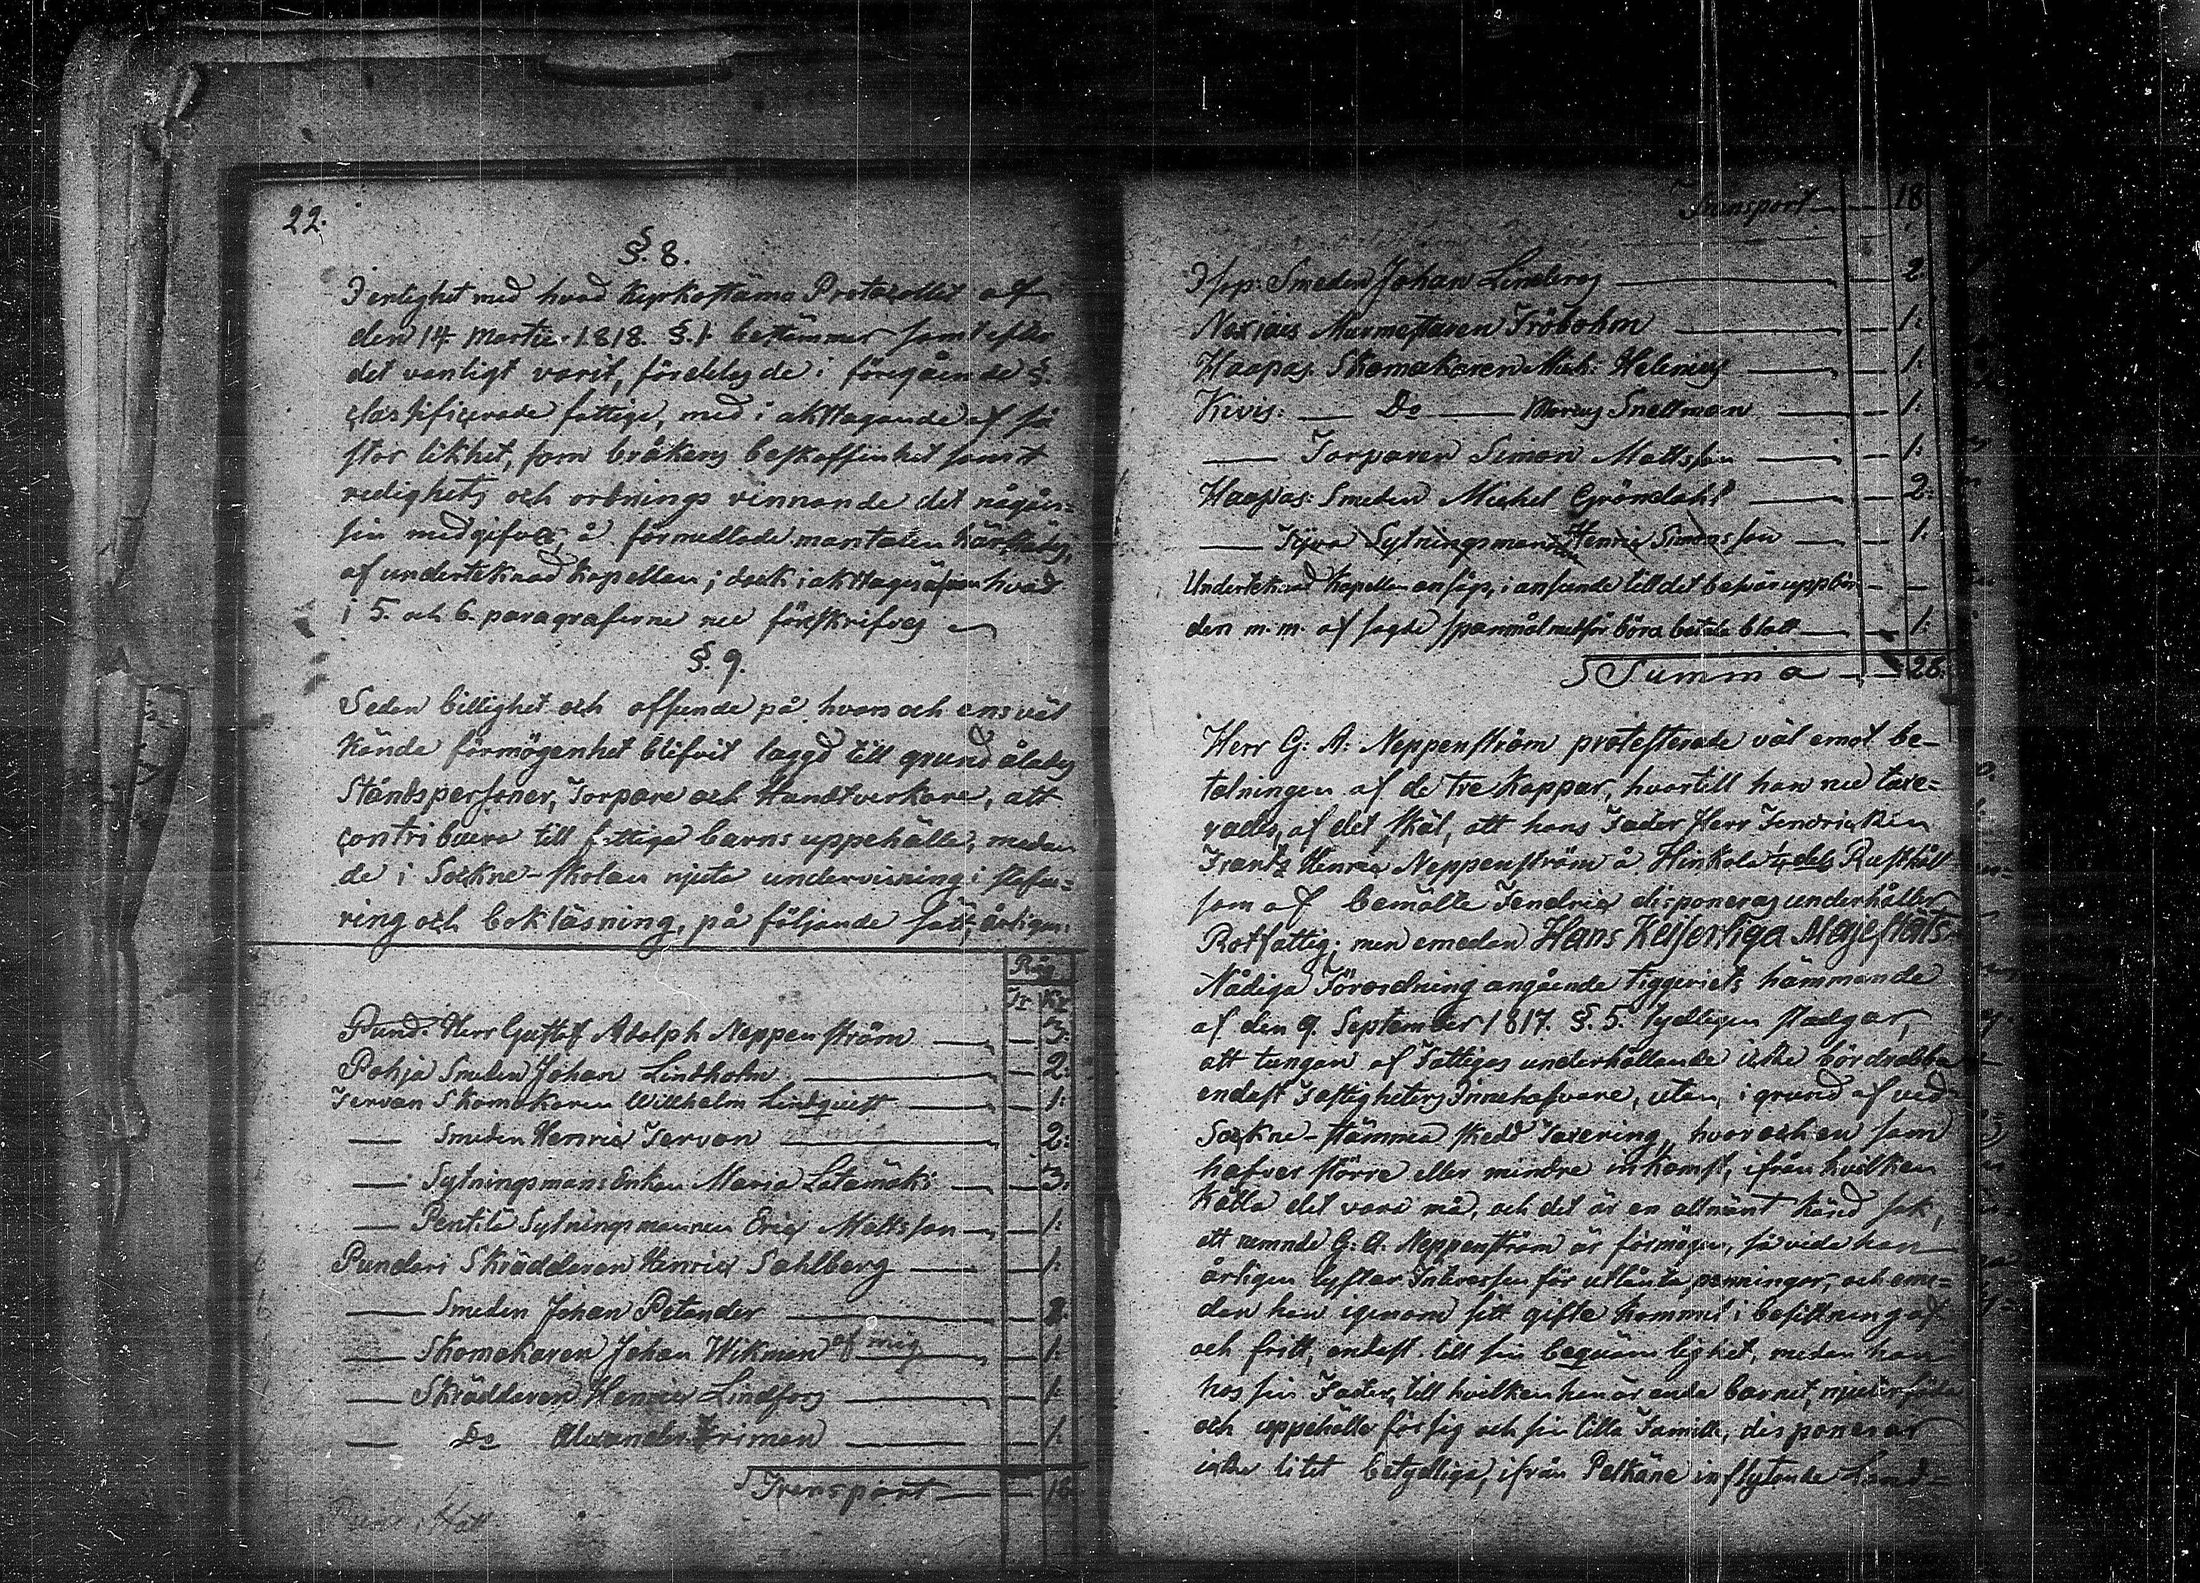 22.
§. 8.
I enlighet med hvad Kyrkostämo Protocollet af
den 14 Martii 1818. §. 1. bestämmer samt efter
det vanligt varit, fördelades de i föregående §.
classificerade fattige, med i akttagande af så
stor likhet, som bråkens beskaffenhet samt
redighets och ordnings vinnande det någon-
sin medgifva, å förmedlade mantalen härstädes,
af undertecknad Kapellan; dock i akttages äfven hvad
i 5. och 6. paragraferne nu föreskrifves
§. 9.
Sedan billighet och afseende på hvars och ens väl
kända förmögenhet blifvit lagd till grund ålades
Ståndspersoner, Torpare och Handtverkare, att
contribuera till fattiga barns uppehälle, medan
de i Sockne-skolan njuta undervisning i stafv-
ring och bokläsning, på följande sätt, årligen:
Råg
Tr Kr
Pund. Herr Gustaf Adolph Neppenström — — 3:
Pohja Smeden Johan Lindholm — — 2:
Tervan Skomakaren Willhelm Lindquist — — 1:
— Smeden Henric Tervan — 2:
— Sytningsmans Enkan Maria Latämäki — — 3.
— Pentilä Sytningsmannen Eric Matsson — — 1:
Punderi Skräddaren Henric Sahlberg — — 1:
— Smeden Johan Petander — — 2:
— Skomakaren Johan Wikman af mig — — 1:
— Skräddaren Henric Lindfors — — 1:
— Do Alexander Friman — — 1:
Transport — — 18
Transport — — 18
Isop: Smeden Johan Lindberg — — 2
Murmestaren Fröbohm — — 1:
Haapas. Skomakaren Mich: Helenius — — 1:
Kivis: — Do — Snellman — — 1:
— Torparen Simon Mattsson — — 1:
Haapas: Smeden Michel Gröndahl — — 2:
— Sytningsman Henric Simonsson — — 1:
Undertecknad Kapellan ansågs, i anseende till det besvär uppbör-
den m. m. af sagde spanmål medför böra betala blott — — 1:
Summa — — 28.
Herr G: A: Neppenström protesterade väl emot be-
talningen af de tre kappar, hvartill han nu taxe-
rades, af det skäl, att hans Fader Herr Fendricken
Frantz Henric Neppenström å Hinkala Rusthåll
som af bemälte Fendric disponeras underhåller
Rotfattig; men emedan Hans Keiserliga Majestäts
Nådiga Förordning angående tiggeriets hämmande
af den 9. September 1817. §. 5. tydligen stadgar,
att tungan af Fattigas underhållande icke bör drabba
endast Fastigheters Innehafvare, utan, i grund af ved
Sockne-stämma skedd Taxering, hvar och en som
hafver större eller mindre inkomst, ifrån hvilken
källa det vara må, och det är en allmänt känd sak,
att nemnde G: A: Neppenström är förmögen, så vida han
årligen lyftar Intressen för utlånta penningar, och eme-
dan han igenom sitt gifte kommit i besittning af
och fritt, endast till sin beqvämlighet, medan han
hos sin Fader, till hvilken han är enda barnet, njuter föda
och uppehälle för sig och sin lilla Famille, disponerar
icke litet betydliga, ifrån Pelkäne inflytande Land-